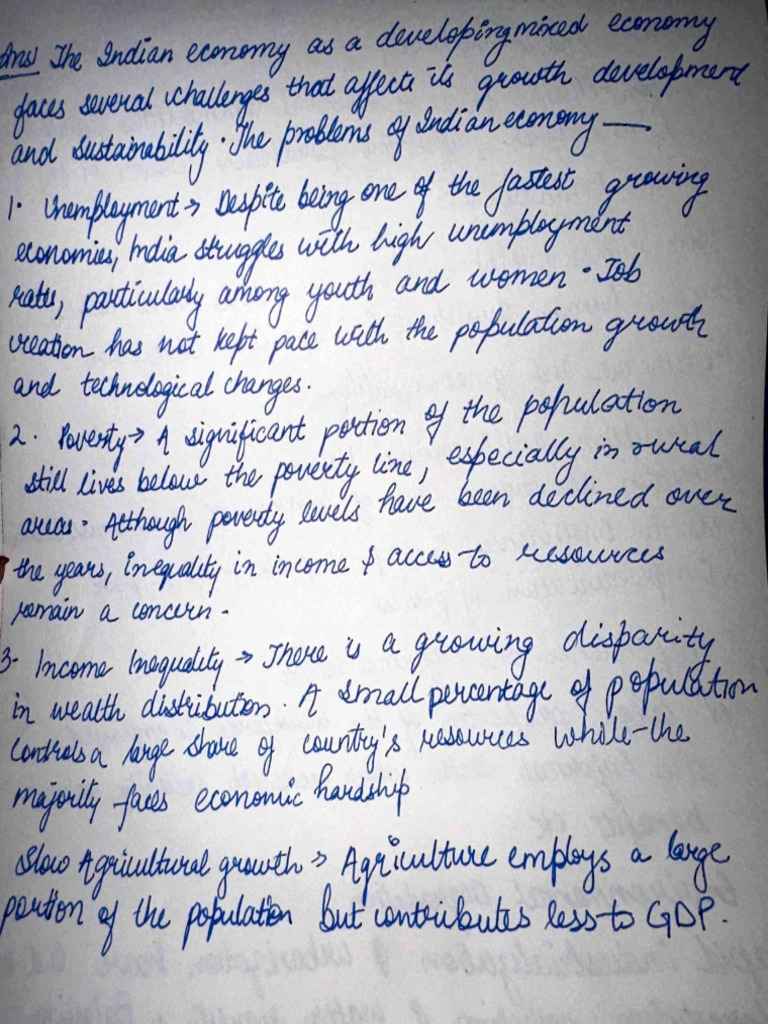 Ans) The Indian economy as a developing mixed economy
faces several challenges that affects its growth development
and sustainability. The problems of Indian economy —
1. Unemployment → Despite being one of the fastest growing
economies, India struggles with high unemployment
rates, particularly among youth and women. Job
creation has not kept pace with the population growth
and technological changes.
2. Poverty → A significant portion of the population
still lives below the poverty line, especially in rural
areas. Although poverty levels have been declined over
the years, inequality in income & access to resources
remain a concern.
3. Income Inequality → There is a growing disparity
in wealth distribution. A small percentage of population
controls a large share of country's resources while the
majority faces economic hardship
Slow Agricultural growth → Agriculture employs a large
portion of the population but contributes less to GDP.